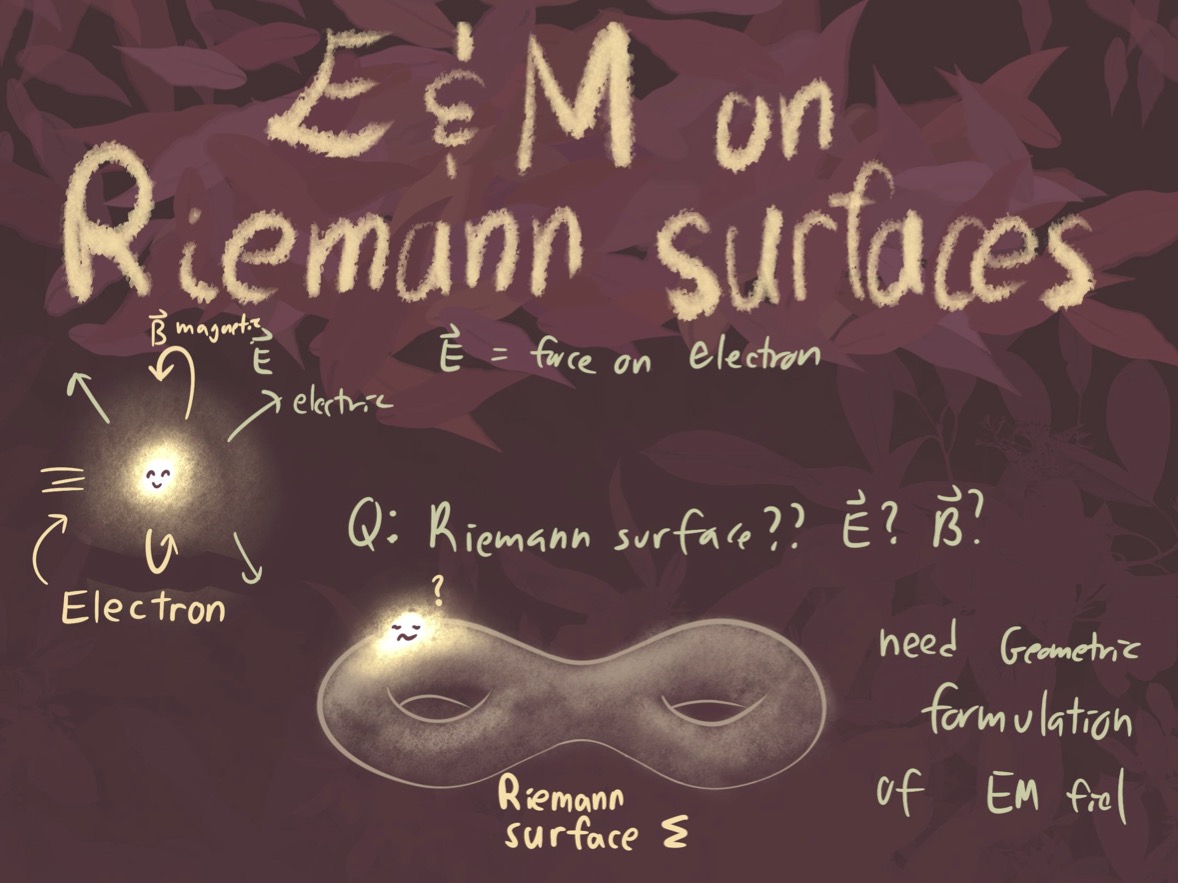 E & M on
Riemann surfaces
B⃗ magnetic
E⃗
electric
Electron
E⃗ = force on electron
Q: Riemann surface?? E⃗? B⃗?
?
Riemann
surface Σ
need Geometric
formulation
of EM fiel